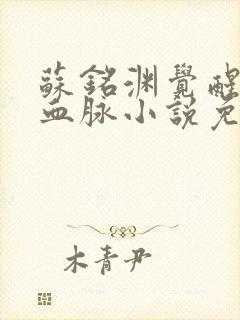 蘇銘淵覺醒
血脉小說免
木青尹